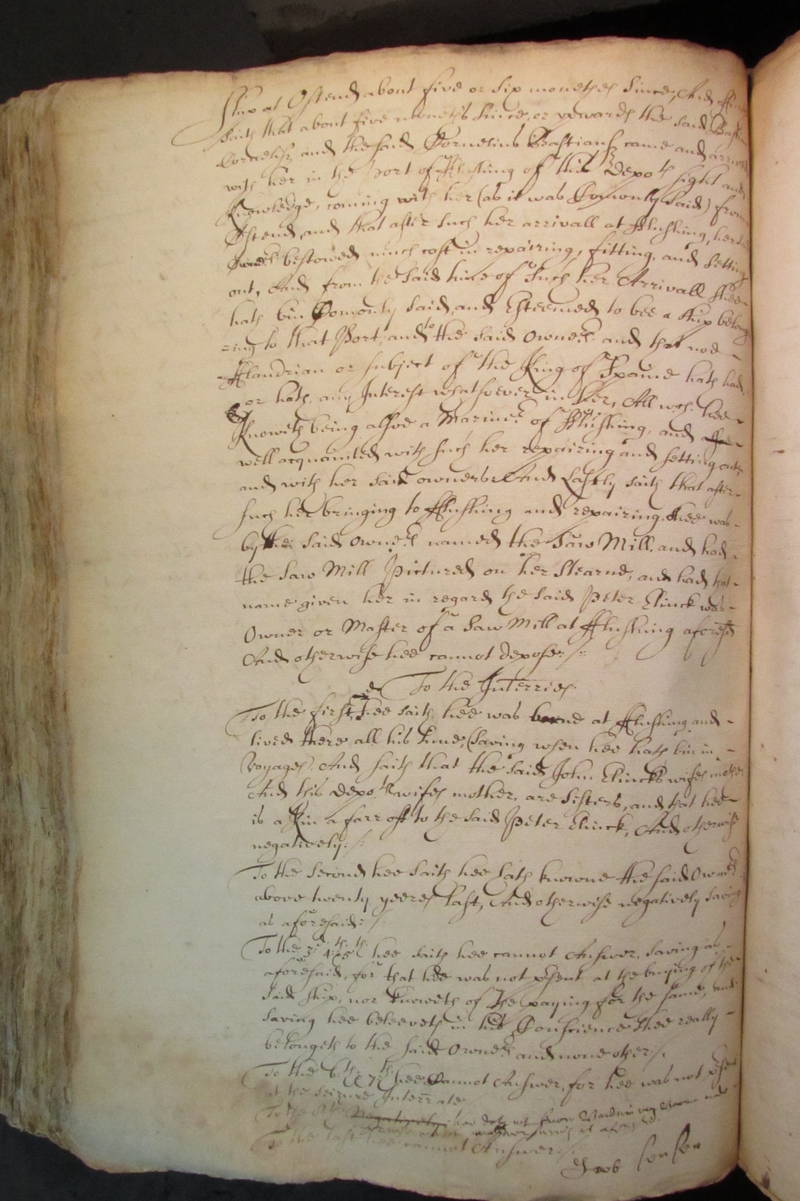 Ship at Ostend about five or six moneths since, And
saith that about five moneths since, or upwards the said
Cornelisz and the said Cornelius Bastians came and arrived
with her in the Port of fflushing of this depots sight and
knowledge, coming with her (as it was Comonly said) from
Ostend, and that after such her arrivall at fflushing, her
Owners bestowed much cost in repairing, fitting, and setting
out, And from the said time of such her Arrivall shee
hath bin Comonly said, and Esteemed to bee a ship belong
=ing to that Port, and to the said Owners and that noe
fflandrian or subject of the King of Spaine hath had
or hath any Interest whatsoever in her, All wch hee
Knoweth being alsoe a Mariner of fflushing, and
well acquainted with such her repairing and setting out
and with her said owners. And Lastly saith that after
such her bringing to fflushing and repairing, shee was
by the said Owners named the Saw Mill, and had
the Saw Mill Pictured on her Stearne, and had that
name given her in regard the said Peter Clinck was
Owner or Master of a Saw Mill at fflushing aforesd
And otherwise hee cannot depose ./.
To the Interries
To the first, hee saith hee was borne at fflushing and
lived there all his time, (saving when hee hath bin in
Voyages) And saith that the said John Clincks wifes mother
And this depots wifes mother, are sisters, and that hee
is a Kin a farr off to the said Peter Clinck, And otherwise
negatively ./.
To the second hee saith hee hath knowne the said Owners
above twenty yeeres last, And otherwise negatively saving
as aforesaid ./.
To the 3d 4th 5th hee saith hee cannot Answer, saving as
aforesaid, for that hee was not psent at the buying of the
said ship, nor knoweth of the paying for the same, and
saving hee beleeveth in his Conscience shee really
belongeth to the said Owners and none other ./.
To the 6th & 7th hee Cannot Answer, for hee was not psent
at the seizure Interrate
To the last hee cannot Answer ./.
Jacob Jansen